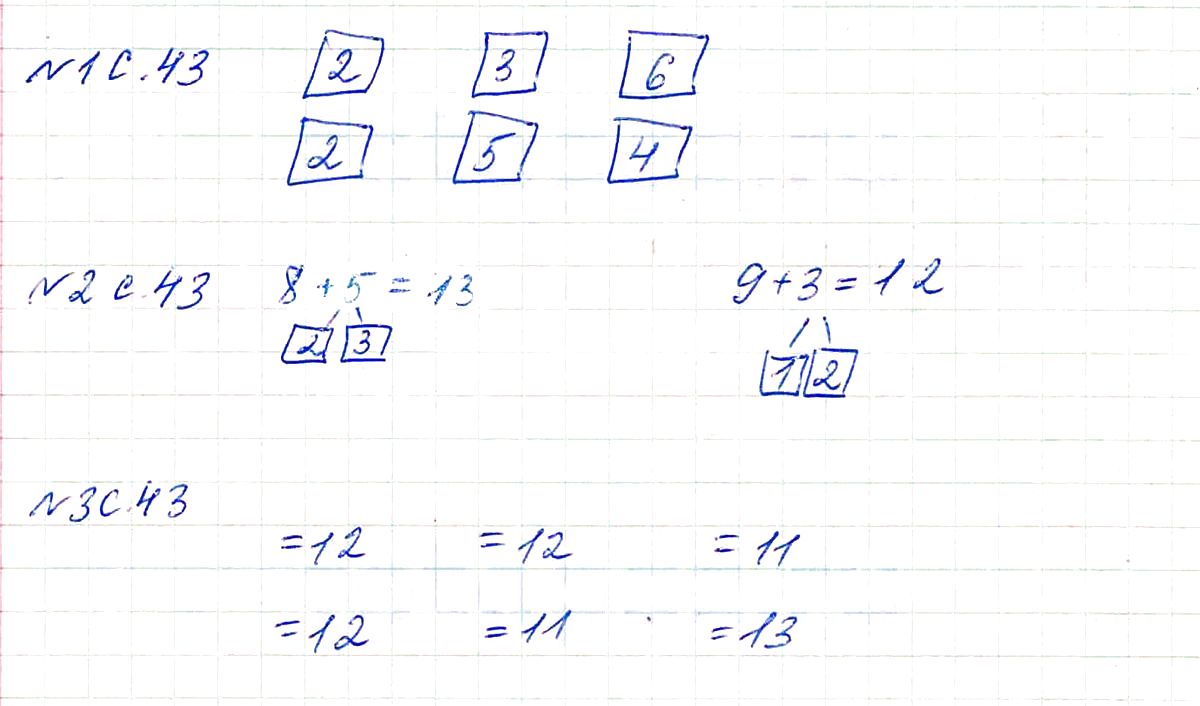 №1 с.43 2 3 6
2 5 4
№2 с.43 8+5=13 9+3=12
2 3 1 2
№3 с.43
=12 =12 =11
=12 =11 =13